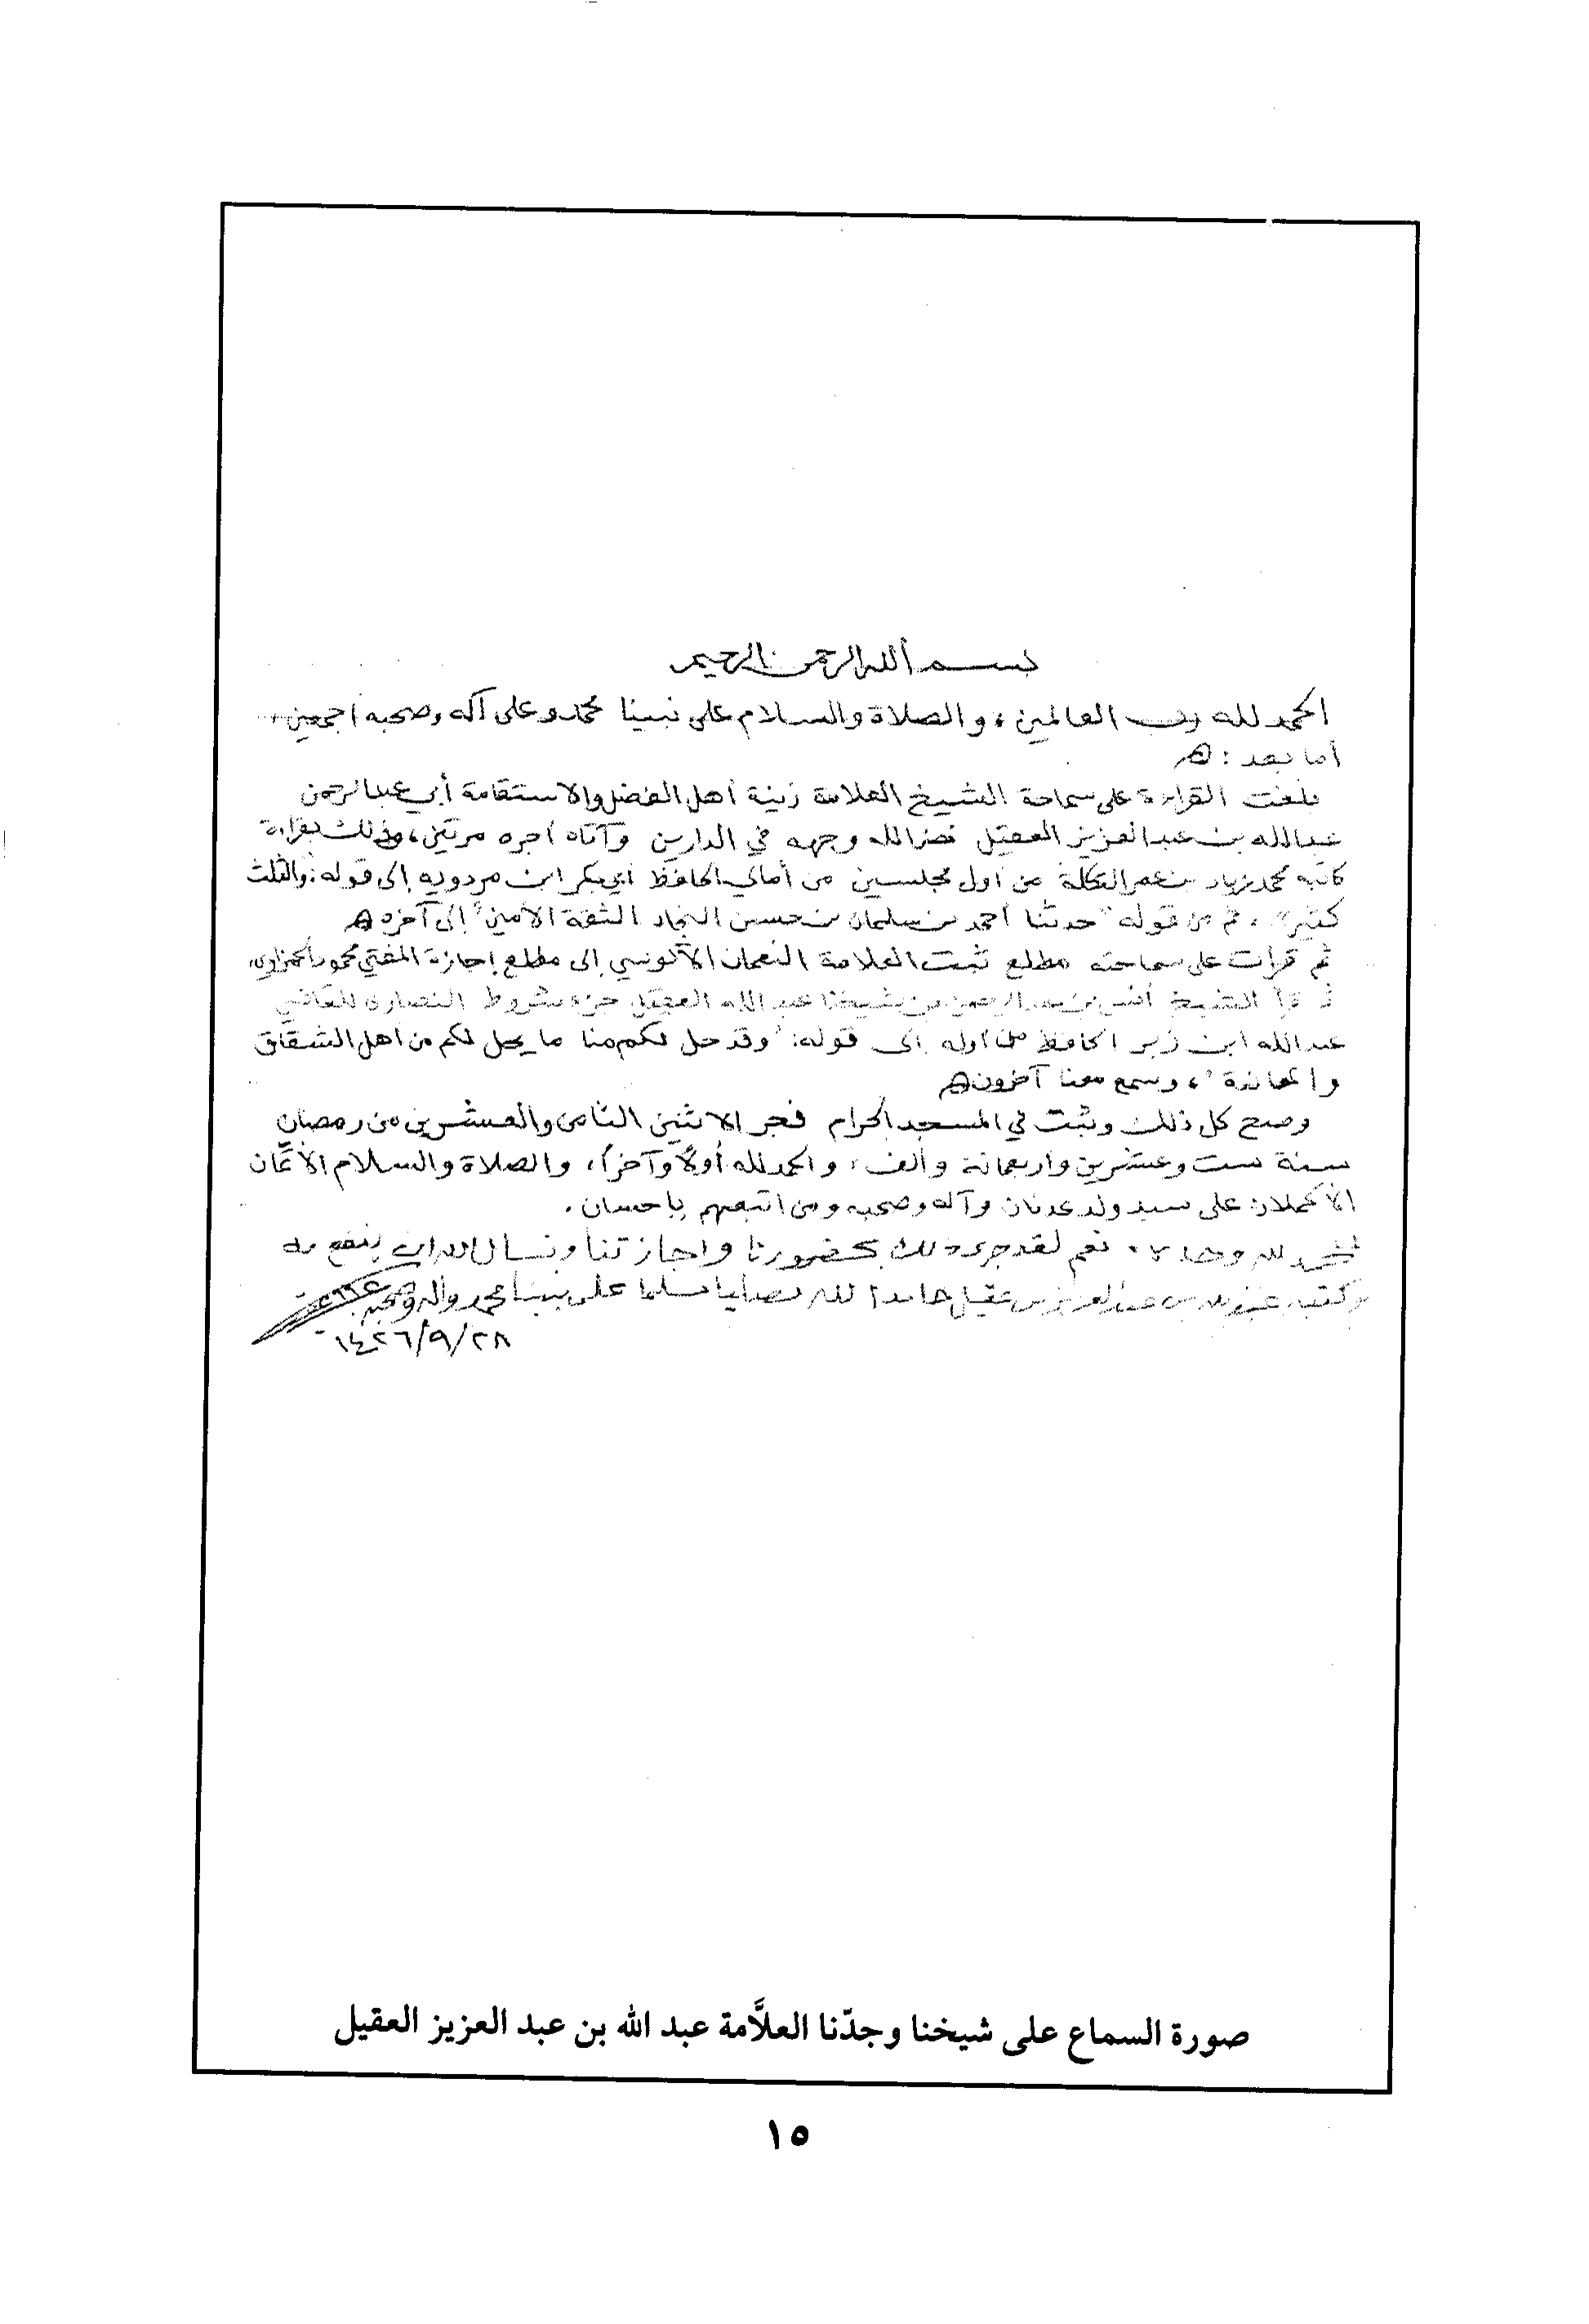 بسم الله الرحمن الرحيم
الحمد لله رب العالمين، والصلاة والسلام على نبينا محمد وعلى آله وصحبه أجمعين،
أما بعد:
بلغت القراءة على سماحة الشيخ العلامة زينة أهل الفضل والاستقامة أبي عبدالرحمن
عبدالله بن عبدالعزيز العقيل نضر الله وجهه في الدارين وآتاه أجره مرتين، وذلك بقراءة
كاتبه محمد زياد بن عمر التكلة من أول مجلسين من أمالي الحافظ أبي بكر ابن مردويه إلى قوله: "والثلث
كثير"، ثم من قوله "حدثنا أحمد بن سليمان بن حسين النجاد الثقة الأمين" إلى آخره
ثم قرأت على سماحته مطلع ثبت العلامة النعمان الآلوسي إلى مطلع إجازة المفتي محمود الحمزاوي،
ثم قرأ الشيخ أنس بن عبد الرحمن بن شيخنا عبد الله العقيل جزء شروط النصارى للقاضي
عبدالله ابن زبر الحافظ من أوله إلى قوله: "وقد حل لكم منا ما يحل لكم من أهل الشقاق
والمعاندة"، وسمع معنا آخرون
وصح كل ذلك وثبت في المسجد الحرام فجر الاثنين الثامن والعشرين من رمضان
سنة ست وعشرين وأربعمائة وألف، والحمد لله أولاً وآخراً، والصلاة والسلام الأتمَّان
الأكملان على سيد ولد عدنان وآله وصحبه ومن اتبعهم بإحسان.
الحمد لله وحده. نعم لقد جرى ذلك بحضورنا وإجازتنا ونسأل الله أن ينفع به
وكتبه عبدالله بن عبدالعزيز بن عقيل حامدا لله مصليا مسلما على نبينا محمد وآله وصحبه
١٤٢٦/٩/٢٨
صورة السماع على شيخنا وجدّنا العلاَّمة عبد الله بن عبد العزيز العقيل
١٥